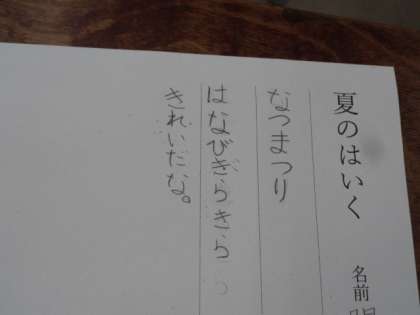 夏のはいく
名前
なつまつり
はなびぎらきら
きれいだな。